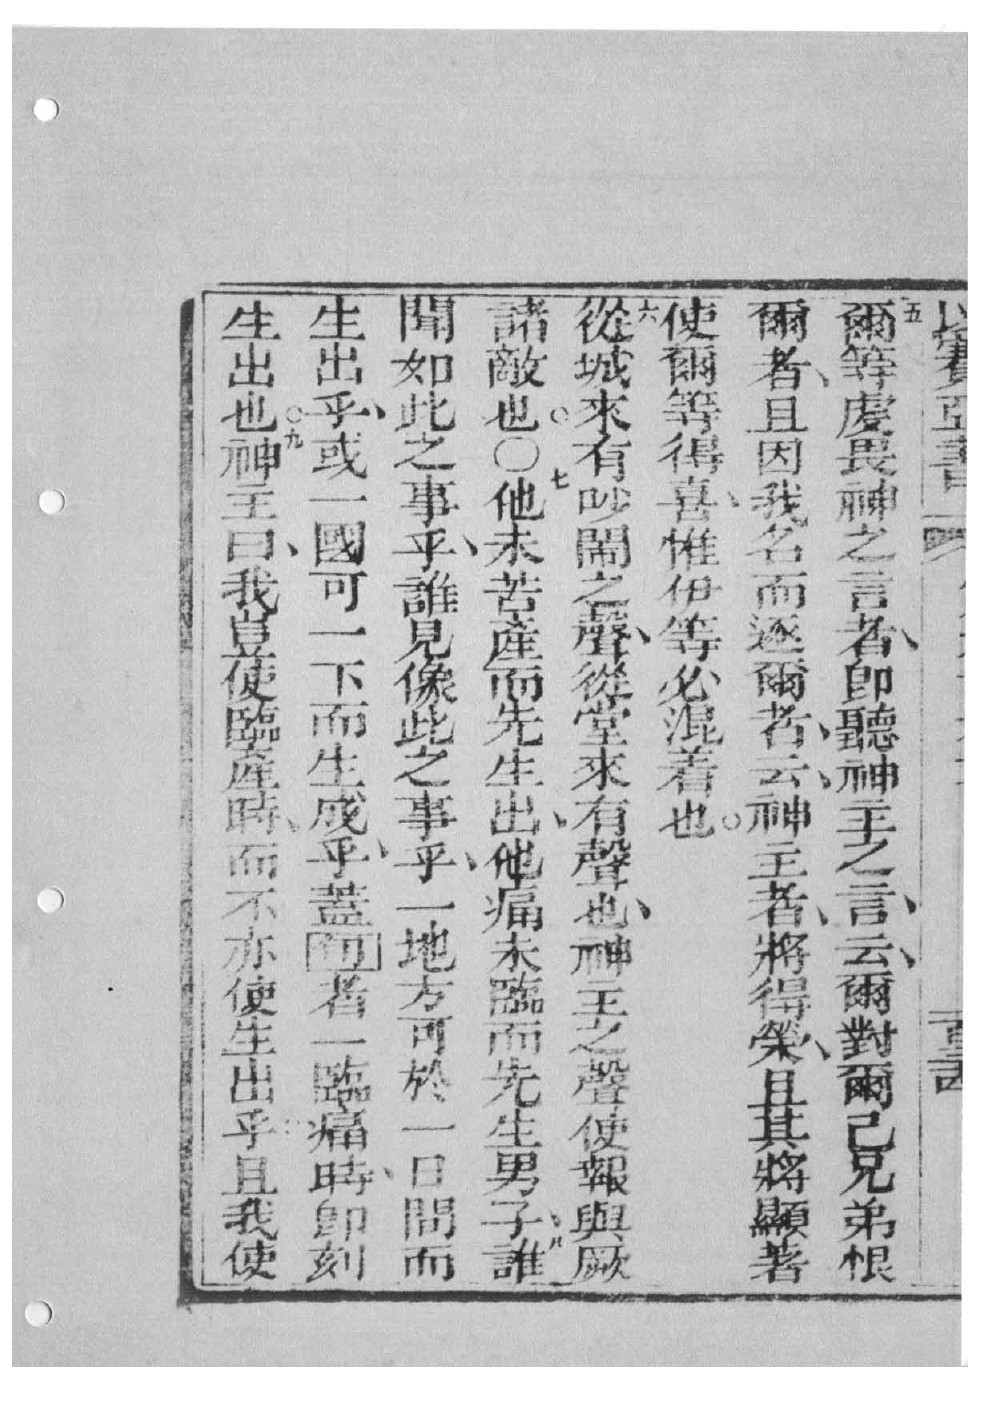 以賽亞書
五爾等虔畏神之言者、卽聽神主之言、云、爾對爾己兄弟恨
爾者、且因我名而逐爾者、云、神主者、將得榮、且其將顯著
使爾等得喜、惟伊等必混着也○
六從城來有吵鬧之聲、從堂來有聲也、神主之聲使報與厥
諸敵也○〇七他未苦產而先生出、他痛未臨而先生男子、八誰
聞如此之事乎、誰見像此之事乎、一地方可於一日間而
生出乎、或一國可一下而生成乎、蓋旬者一臨痛時、卽刻
生出也○九神主曰、我豈使臨產時、而不亦使生出乎○且我使